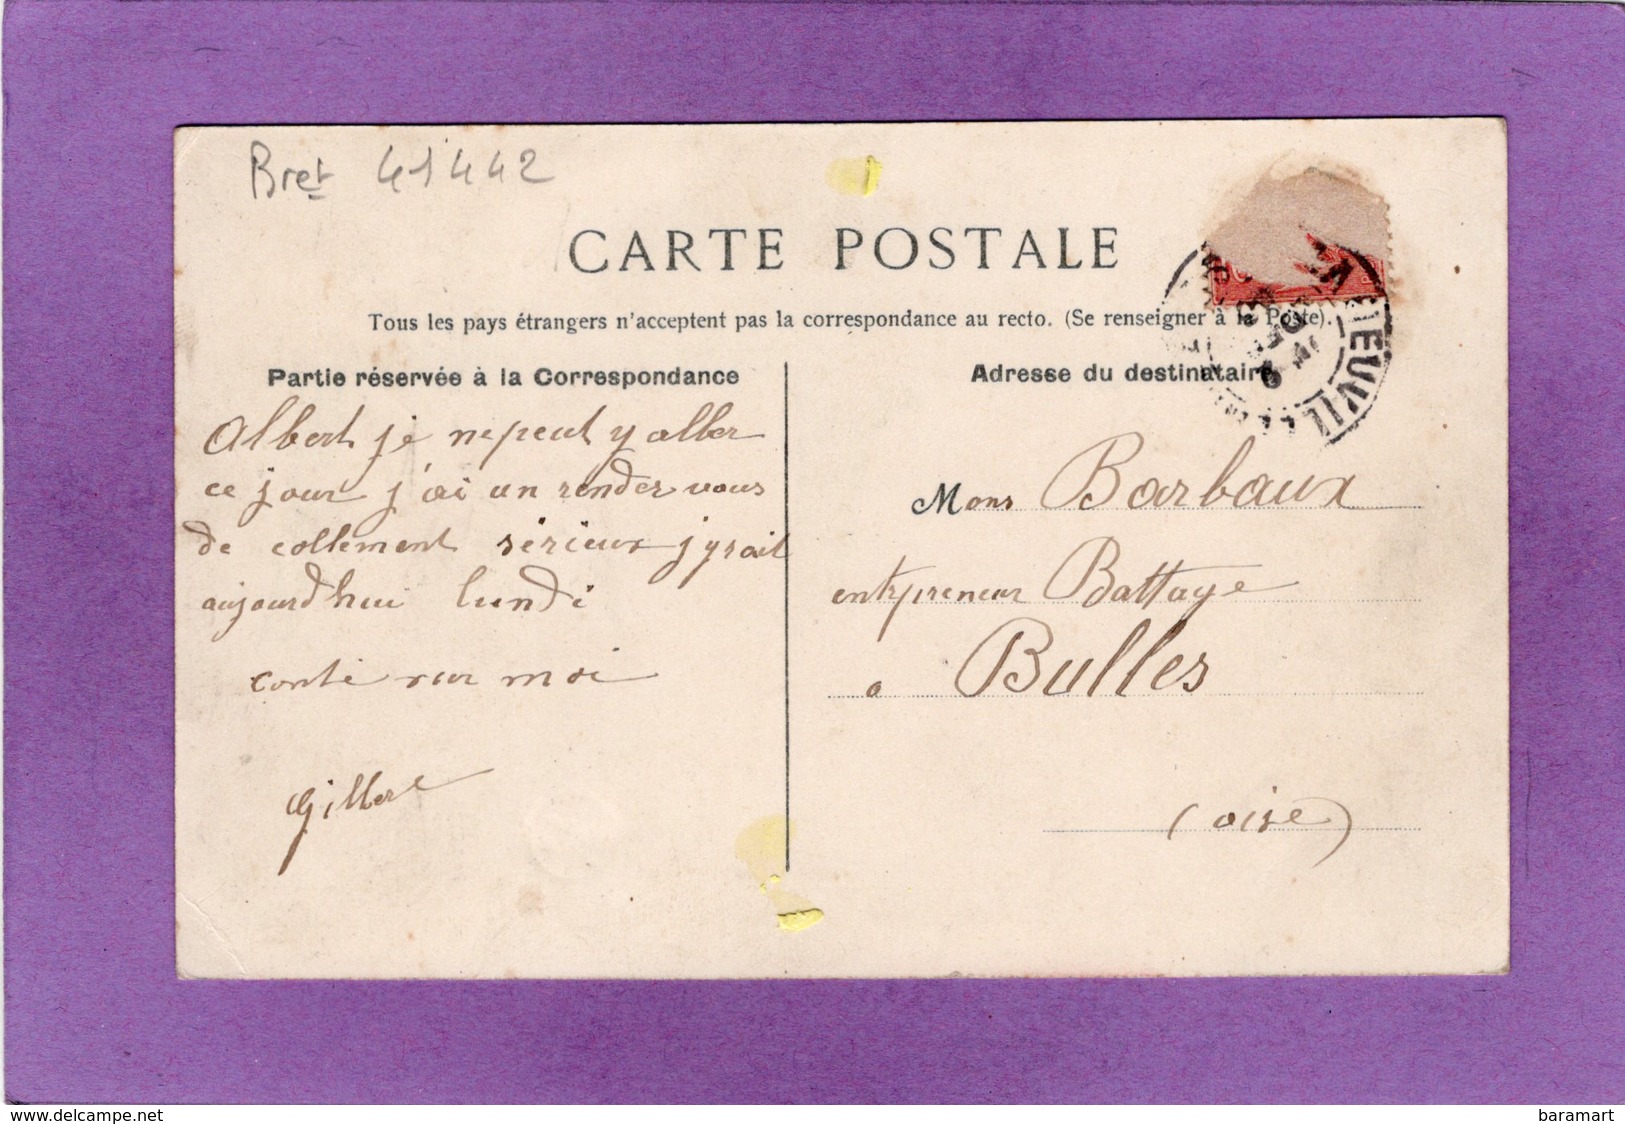 Bret 41442
CARTE POSTALE
Tous les pays étrangers n'acceptent pas la correspondance au recto. (Se renseigner à la Poste).
Partie réservée à la Correspondance
Albert je ne peut y aller
ce jour j'ai un render vous
de collement sérieux j'y rait
aujourd'hui lundi
conte sur moi
Gilbert
Adresse du destinataire
Mons Barbaux
entrpreneur Battage
a Bulles
(oise)
IEUVIL
www.delcampe.net
baramart